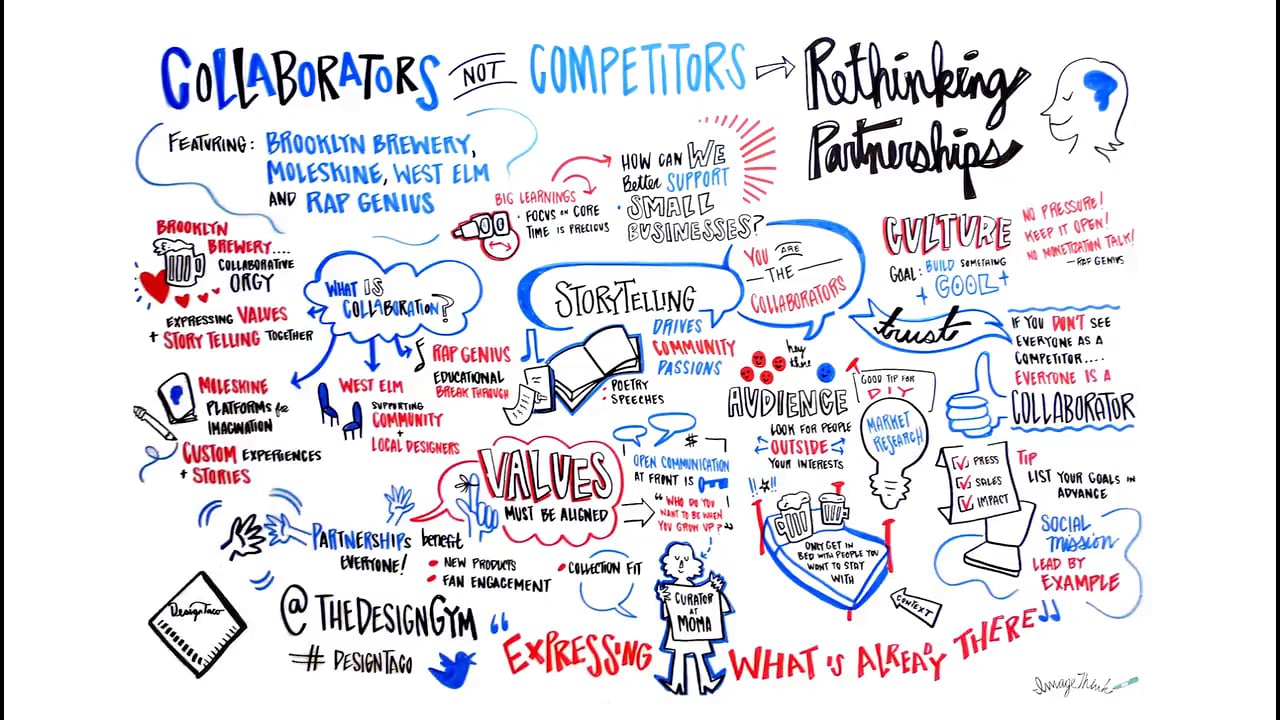 COLLABORATORS NOT COMPETITORS → Rethinking
Partnerships
FEATURING: BROOKLYN BREWERY,
MOLESKINE, WEST ELM
AND RAP GENIUS
BIG LEARNINGS
• FOCUS ON CORE
• TIME IS PRECIOUS
HOW CAN WE
Better SUPPORT
SMALL
BUSINESSES?
CULTURE
GOAL: BUILD SOMETHING
+ COOL +
NO PRESSURE!
KEEP IT OPEN!
NO MONETIZATION TALK!
- RAP GENIUS
BROOKLYN
BREWERY....
COLLABORATIVE
ORGY
EXPRESSING VALUES
+ STORYTELLING TOGETHER
WHAT IS
COLLABORATION?
STORYTELLING
DRIVES
COMMUNITY
PASSIONS
• POETRY
• SPEECHES
YOU ARE
- THE -
COLLABORATORS
trust
IF YOU DON'T SEE
EVERYONE AS A
COMPETITOR....
EVERYONE IS A
COLLABORATOR
RAP GENIUS
EDUCATIONAL
BREAK THROUGH
WEST ELM
SUPPORTING
COMMUNITY
+
LOCAL DESIGNERS
MOLESKINE
PLATFORMS for
IMAGINATION
CUSTOM EXPERIENCES
+ STORIES
hey
there
AUDIENCE
LOOK FOR PEOPLE
OUTSIDE
YOUR INTERESTS
GOOD TIP FOR
DIY
MARKET
RESEARCH
VALUES
MUST BE ALIGNED
#
OPEN COMMUNICATION
AT FRONT IS
"WHO DO YOU
WANT TO BE WHEN
YOU GROW UP?"
PRESS
SALES
IMPACT
TIP
LIST YOUR GOALS IN
ADVANCE
SOCIAL
mission
LEAD BY
EXAMPLE
PARTNERSHIPS benefit
EVERYONE!
• NEW PRODUCTS
• FAN ENGAGEMENT
• COLLECTION FIT
ONLY GET IN
BED WITH PEOPLE YOU
WANT TO STAY
WITH
CONTEXT
CURATOR
AT
MOMA
DesignTaco
@THEDESIGNGYM
# DESIGNTACO
"EXPRESSING WHAT IS ALREADY THERE"
ImageThink